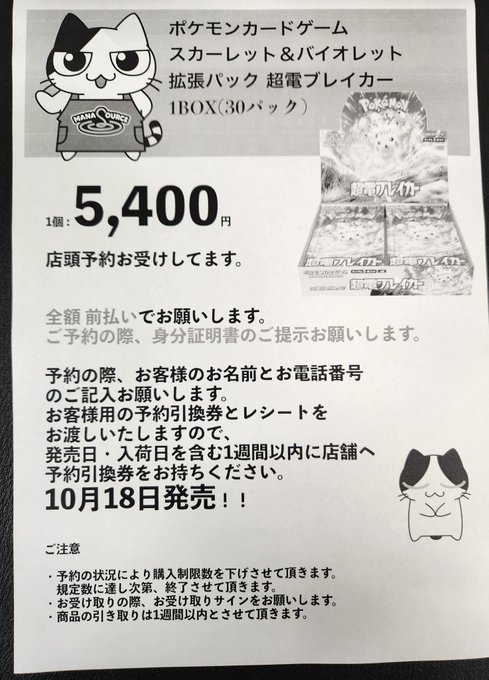 ポケモンカードゲーム
スカーレット＆バイオレット
拡張パック 超電ブレイカー
1BOX(30パック)
MANA SOURCE
Pokémon
超電ブレイカー
超電ブレイカー
1個：5,400円
店頭予約お受けしてます。
全額 前払いでお願いします。
ご予約の際、身分証明書のご提示お願いします。
予約の際、お客様のお名前とお電話番号
のご記入お願いします。
お客様用の予約引換券とレシートを
お渡しいたしますので、
発売日・入荷日を含む1週間以内に店舗へ
予約引換券をお持ちください。
10月18日発売！！
ご注意
・予約の状況により購入制限数を下げさせて頂きます。
規定数に達し次第、終了させて頂きます。
・お受け取りの際、お受け取りサインをお願いします。
・商品の引き取りは1週間以内とさせて頂きます。